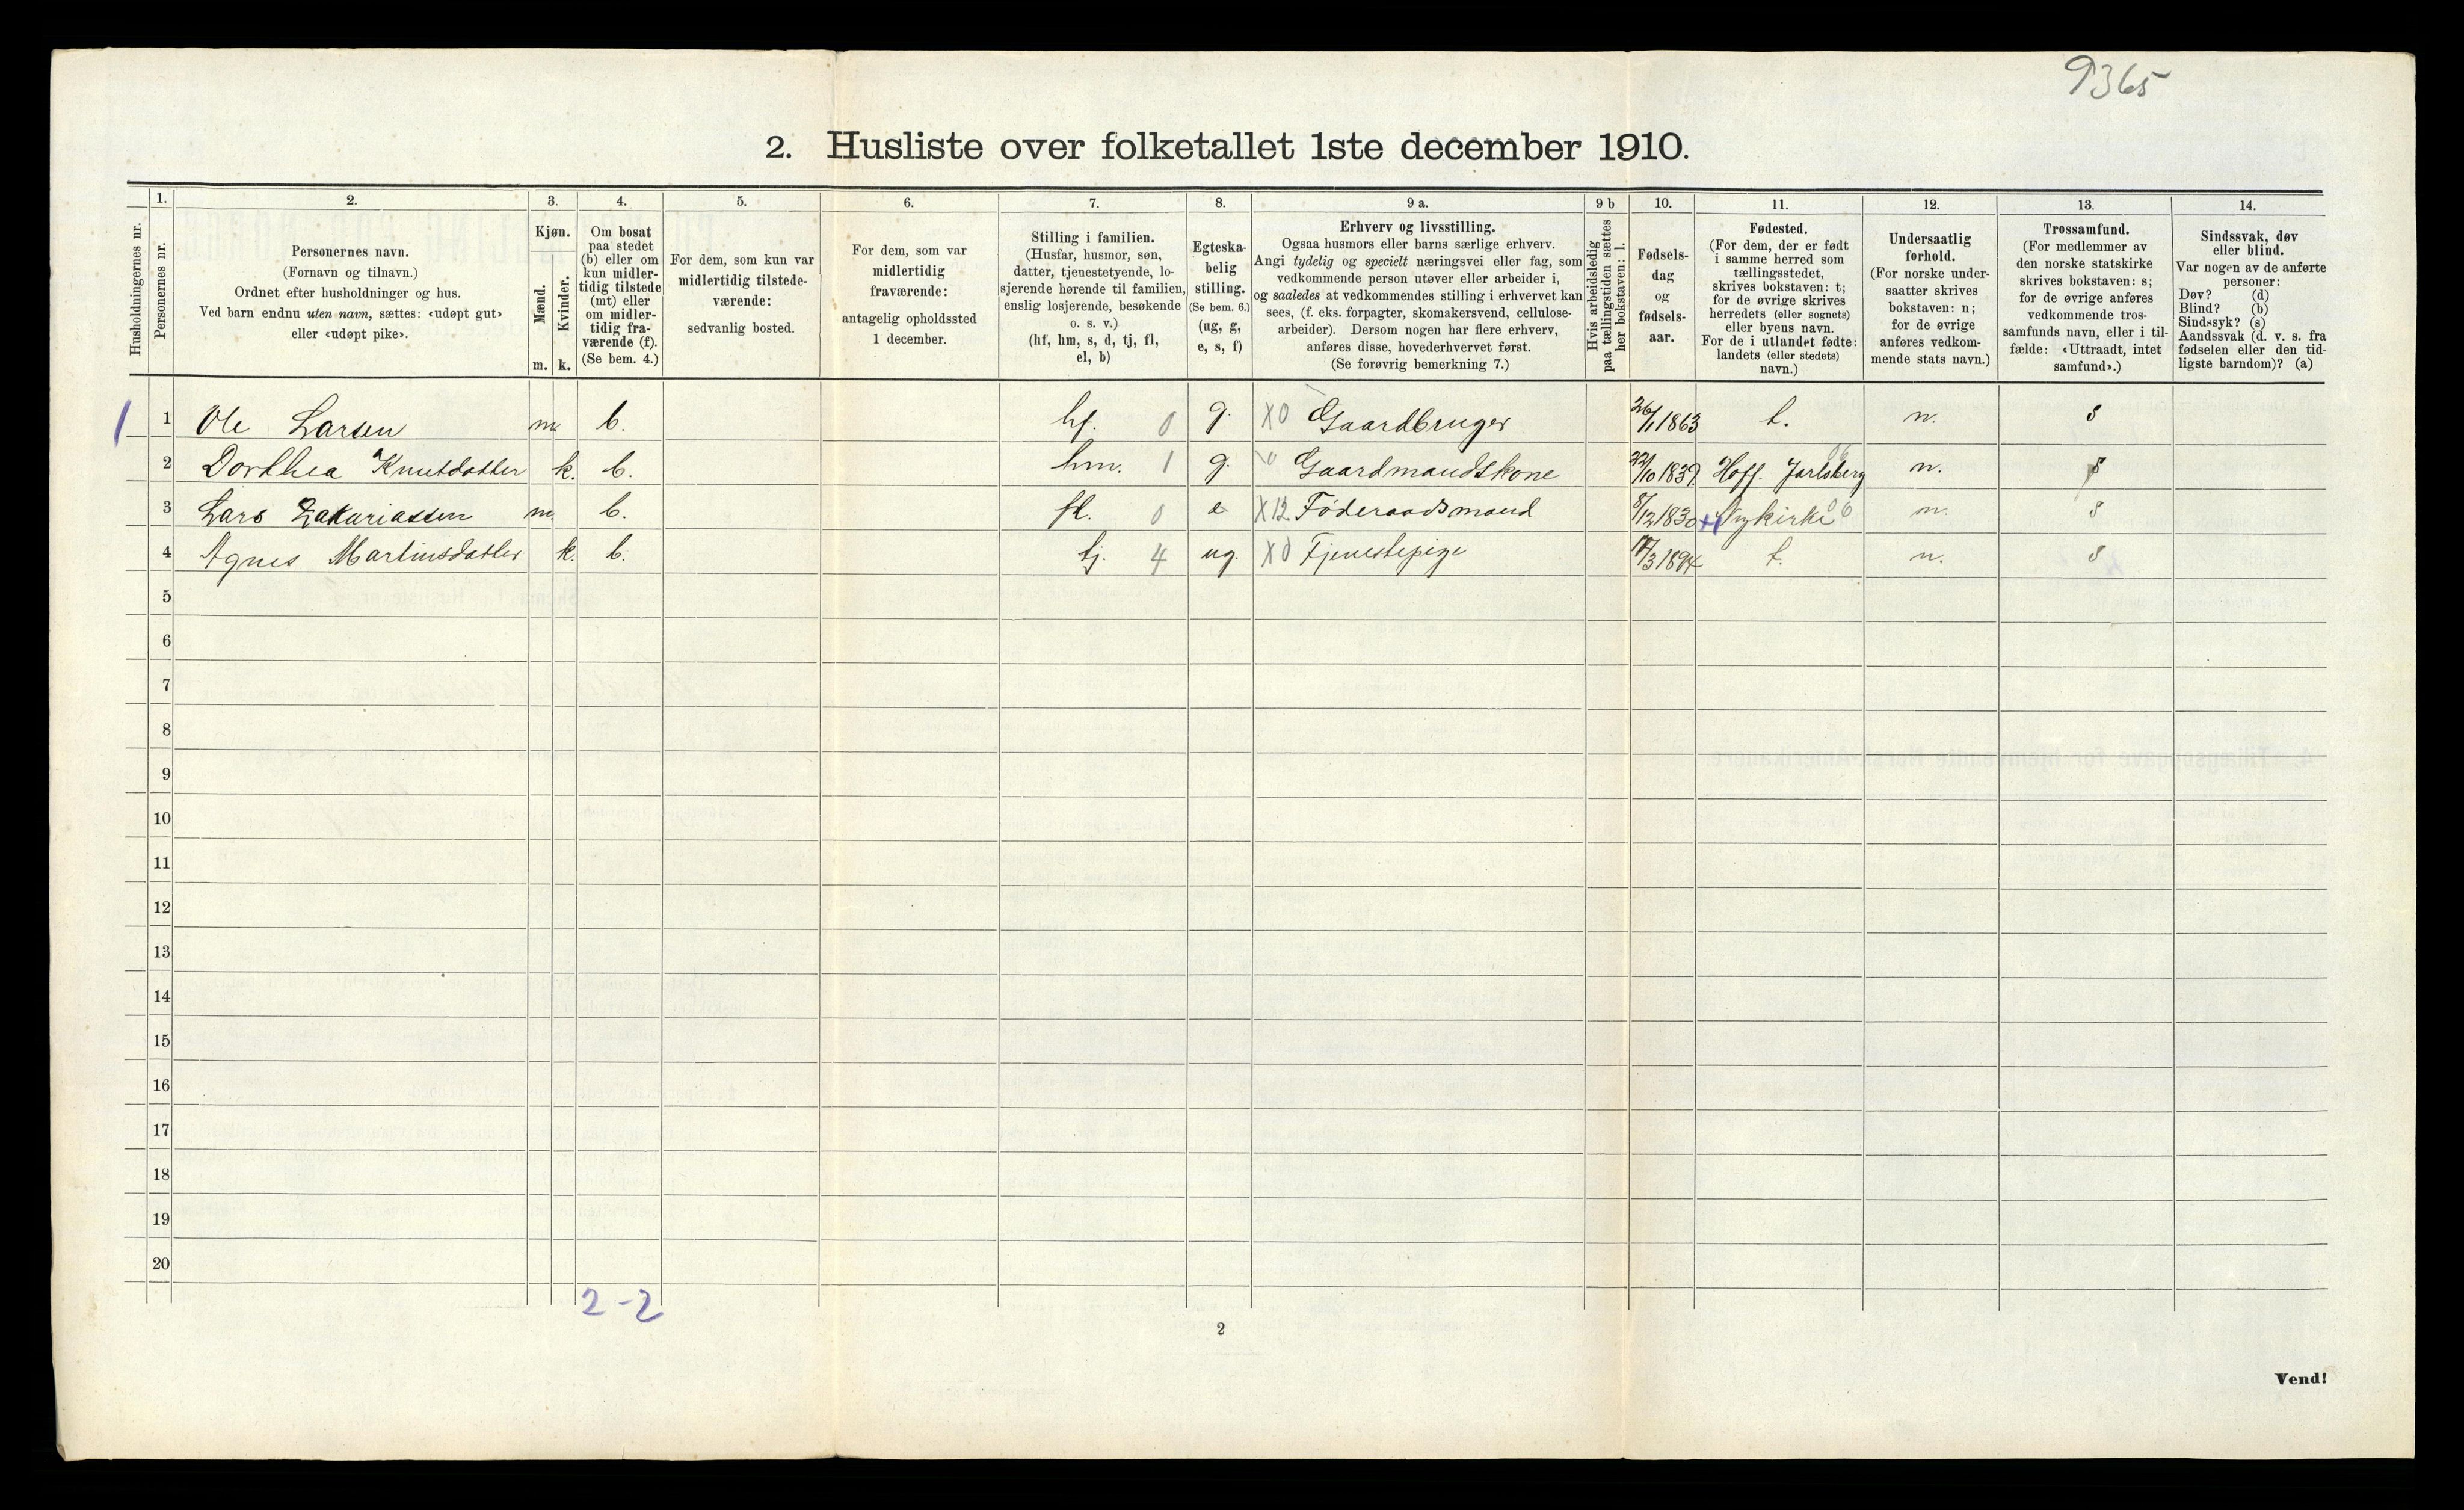 9365
2. Husliste over folketallet 1ste december 1910.
Husholdningernes nr.
1.
Personernes nr.
2.
Personernes navn.
(Fornavn og tilnavn.)
Ordnet efter husholdninger og hus.
Ved barn endnu uten navn, sættes: «udøpt gut»
eller «udøpt pike».
3.
Kjøn.
Mænd.
Kvinder.
m. k.
4.
Om bosat
paa stedet
(b) eller om
kun midler-
tidig tilstede
(mt) eller
om midler-
tidig fra-
værende (f).
(Se bem. 4.)
5.
For dem, som kun var
midlertidig tilstede-
værende:
sedvanlig bosted.
6.
For dem, som var
midlertidig
fraværende:
antagelig opholdssted
1 december.
7.
Stilling i familien.
(Husfar, husmor, søn,
datter, tjenestetyende, lo-
sjerende hørende til familien,
enslig losjerende, besøkende
o. s. v.)
(hf, hm, s, d, tj, fl,
el, b)
8.
Egteska-
belig
stilling.
(Se bem. 6.)
(ug, g,
e, s, f)
9 a.
Erhverv og livsstilling.
Ogsaa husmors eller barns særlige erhverv.
Angi tydelig og specielt næringsvei eller fag, som
vedkommende person utøver eller arbeider i,
og saaledes at vedkommendes stilling i erhvervet kan
sees, (f. eks. forpagter, skomakersvend, cellulose-
arbeider). Dersom nogen har flere erhverv,
anføres disse, hovederhvervet først.
(Se forøvrig bemerkning 7.)
9 b
Hvis arbeidsledig
paa tællingstiden sættes
her bokstaven: l.
10.
Fødsels-
dag
og
fødsels-
aar.
11.
Fødested.
(For dem, der er født
i samme herred som
tællingsstedet,
skrives bokstaven: t;
for de øvrige skrives
herredets (eller sognets)
eller byens navn.
For de i utlandet fødte:
landets (eller stedets)
navn.)
12.
Undersaatlig
forhold.
(For norske under-
saatter skrives
bokstaven: n;
for de øvrige
anføres vedkom-
mende stats navn.)
13.
Trossamfund.
(For medlemmer av
den norske statskirke
skrives bokstaven: s;
for de øvrige anføres
vedkommende tros-
samfunds navn, eller i til-
fælde: «Uttraadt, intet
samfund».)
14.
Sindssvak, døv
eller blind.
Var nogen av de anførte
personer:
Døv? (d)
Blind? (b)
Sindssyk? (s)
Aandssvak (d. v. s. fra
fødselen eller den tid-
ligste barndom)? (a)
1 1 Ole Larsen m b. hf. 0 g. X0 Gaardbruger 26/1 1863 t. n. s
2 Dorthea Knutdatter k. b. hm. 1 g. Gaardmandskone 22/10 1839 Hoff. Jarlsberg n. s
3 Lars Zakariassen m. b. fl. 0 e X12 Føderaadsmand 8/12 1830 Nykirke 06 n. s
4 Agnes Martinsdatter k. b. tj. 4 ug. X0 Tjenestepige 17/3 1894 t. n. s
5
6
7
8
9
10
11
12
13
14
15
16
17
18
19
20
2-2
2
Vend!